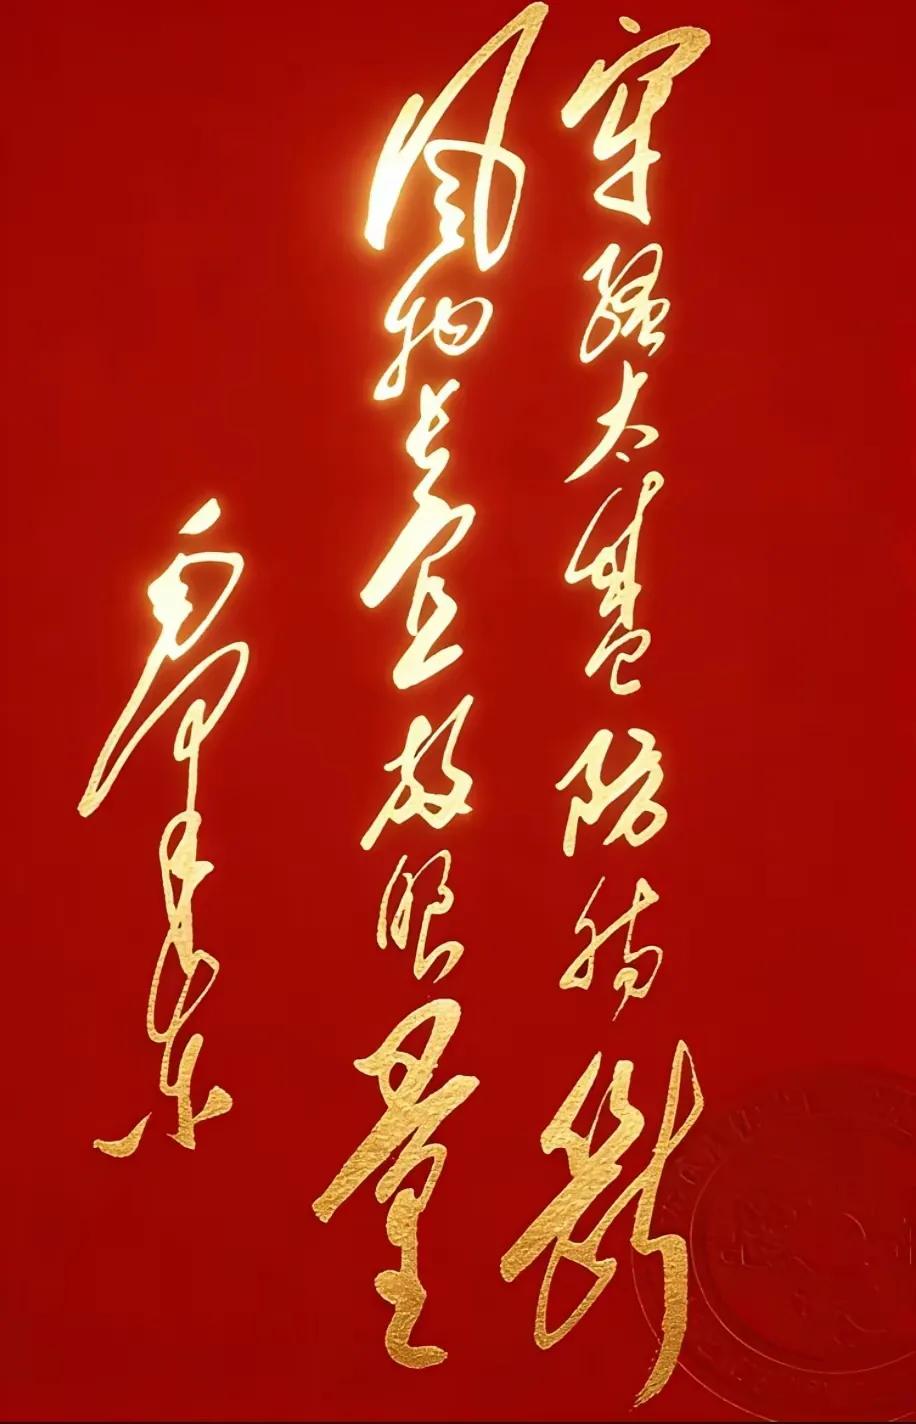 牢骚太盛防肠断
风物长宜放眼量
毛泽东